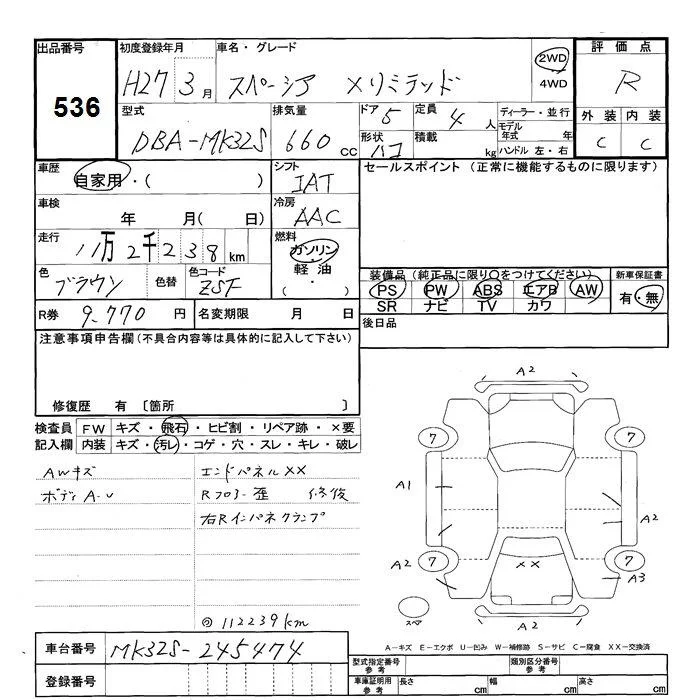 出品番号
536
初度登録年月
H27 3月
車名・グレード
スペーシア ×リミテッド
2WD
4WD
評価点
R
外装 内装
C C
型式
DBA-MK32S
排気量
660 cc
ドア 5
定員 4 人
形状 ハコ
積載 kg
ディーラー・並行
モデル年式 年
ハンドル 左・右
車歴
自家用・( )
シフト
IAT
セールスポイント (正常に機能するものに限ります)
車検
年 月( 日)
冷房
AAC
走行
11万2千238 km
燃料
ガソリン
軽油
( ・ )
色
ブラウン
色替
色コード
ZSF
装備品(純正品に限り○をつけてください)
PS PW ABS エアB AW
SR ナビ TV カワ
新車保証書
有・無
R券 9,770 円
名変期限 月 日
後日品
注意事項申告欄(不具合内容等は具体的に記入して下さい)
修復歴 有 〔箇所 〕
検査員記入欄
FW キズ・飛石・ヒビ割・リペア跡・×要
内装 キズ・汚レ・コゲ・穴・スレ・キレ・破レ
AWキズ
ボディA-U
エンドパネル××
Rフロアー歪 修復
右Rインパネクランプ
◎112239km
A2
7 7
A1
A2
A2 7 7 A3
××
スペア
A2
A-キズ E-エクボ U-凹み W-補修跡 S-サビ C-腐食 XX-交換済
車台番号 MK32S-245474
登録番号
型式指定番号 参考
類別区分番号 参考
車庫証明用 参考
長さ cm 幅 cm 高さ cm